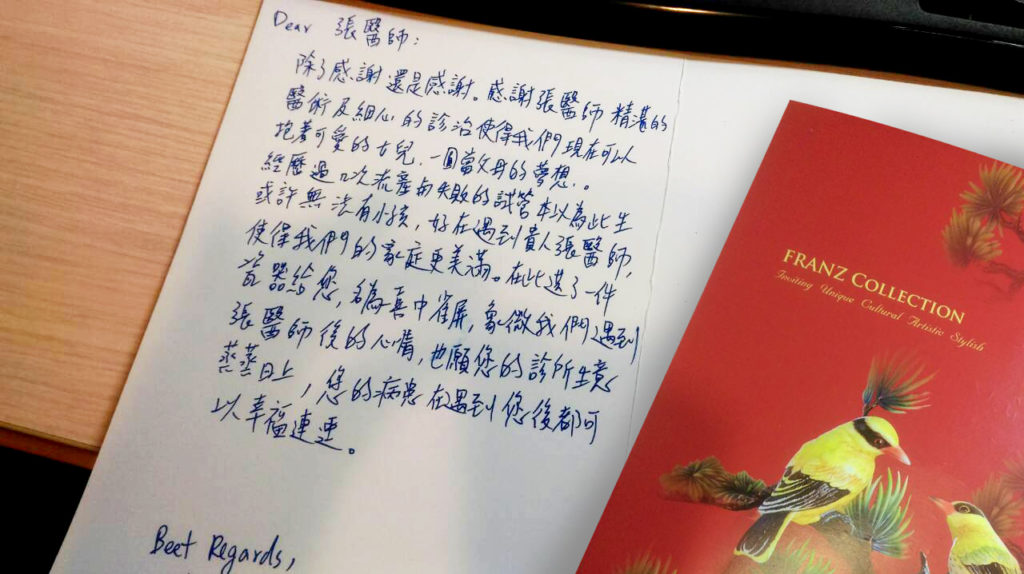 Dear 張醫師:
除了感謝還是感謝。感謝張醫師精湛的
醫術及細心的診治使得我們現在可以
抱著可愛的女兒,一圓當父母的夢想。
經歷過几次流產與失敗的試管本以為此生
或許無法有小孩,好在遇到貴人張醫師,
使得我們的家庭更美滿。在此送了一件
瓷器給您,名為喜中雀屏,象徵我們遇到
張醫師後的心情,也願您的診所生意
蒸蒸日上,您的病患在遇到您後都可
以幸福連連。
Best Regards,
FRANZ COLLECTION
Inviting Unique Cultural Artistic Stylish